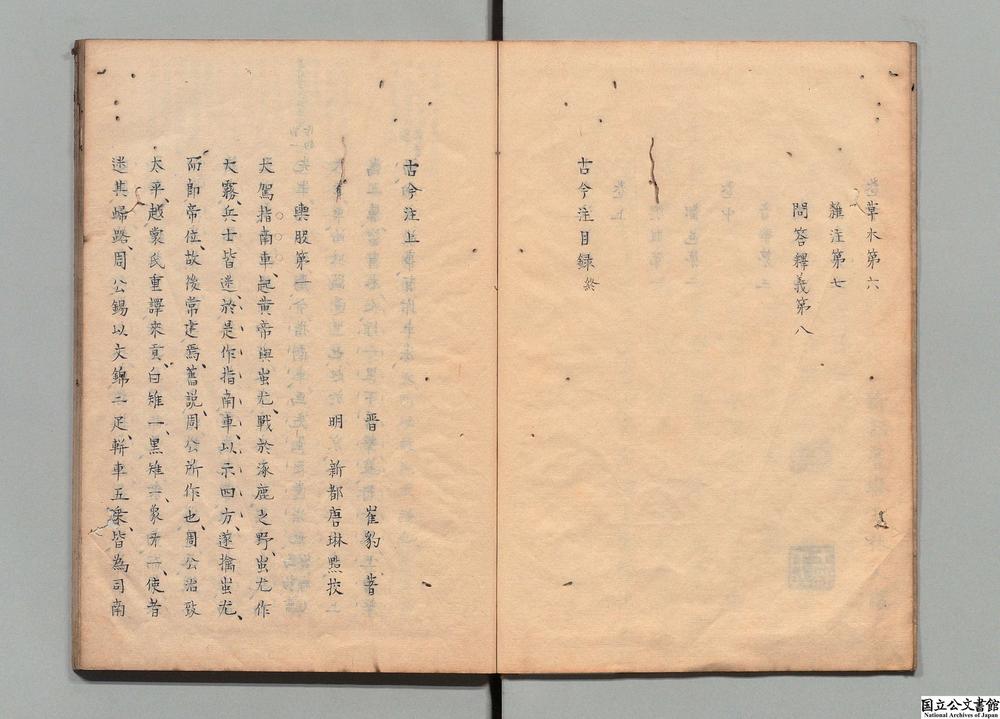 草木第六
雜注第七
問答釋義第八
古今注目録終
古今注上
晋 崔豹 著
明 新都唐琳點挍
輿服第一
大駕指南車、起黄帝與蚩尤、戰於涿鹿之野、蚩尤作
大霧、兵士皆迷、於是作指南車、以示四方、遂擒蚩尤、
而即帝位、故後常建焉、舊説周公所作也、周公治致
太平、越裳氏重譯來貢、白雉一、黒雉二、象牙一、使者
迷其歸路、周公錫以文錦二疋、軿車五乗、皆為司南
国立公文書館
National Archives of Japan